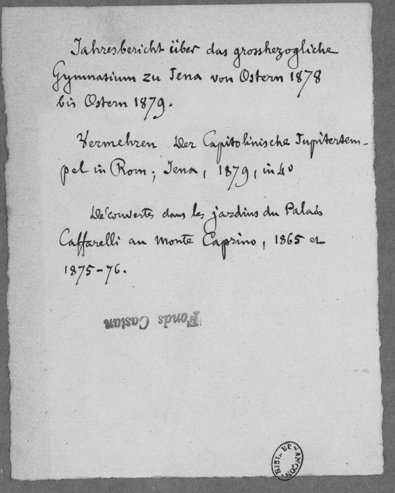 Jahresbericht über das grossherzogliche
Gymnasium zu Jena von Ostern 1878
bis Ostern 1879.
Vermehren Der Capitolinische Jupitertem-
pel in Rom; Jena, 1879, in 4º
Découvertes dans les jardins du Palais
Caffarelli au monte Caprino, 1865 et
1875-76.
Fonds Castan
BIBL. BESANÇON